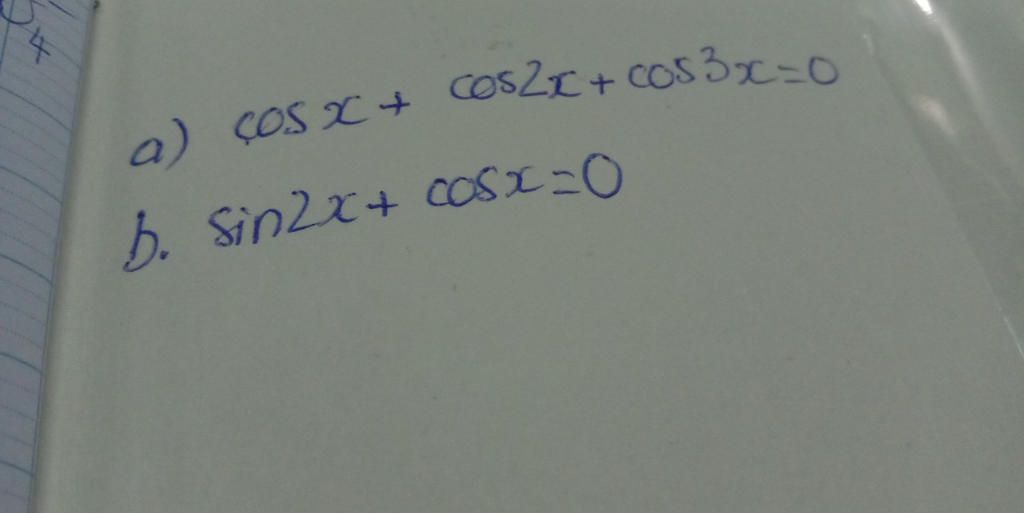 4
a) cos x + cos2x + cos3x = 0
b. sin2x + cosx = 0